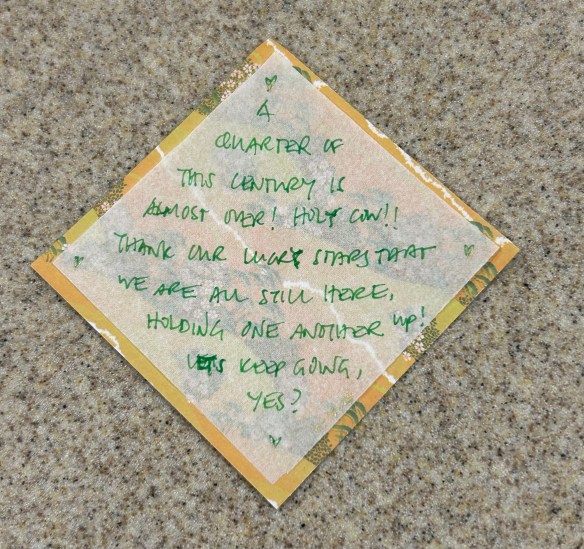 A
QUARTER OF
THIS CENTURY IS
ALMOST OVER! HOLY COW!!
THANK OUR LUCKY STARS THAT
WE ARE ALL STILL HERE,
HOLDING ONE ANOTHER UP!
LETS KEEP GOING,
YES?